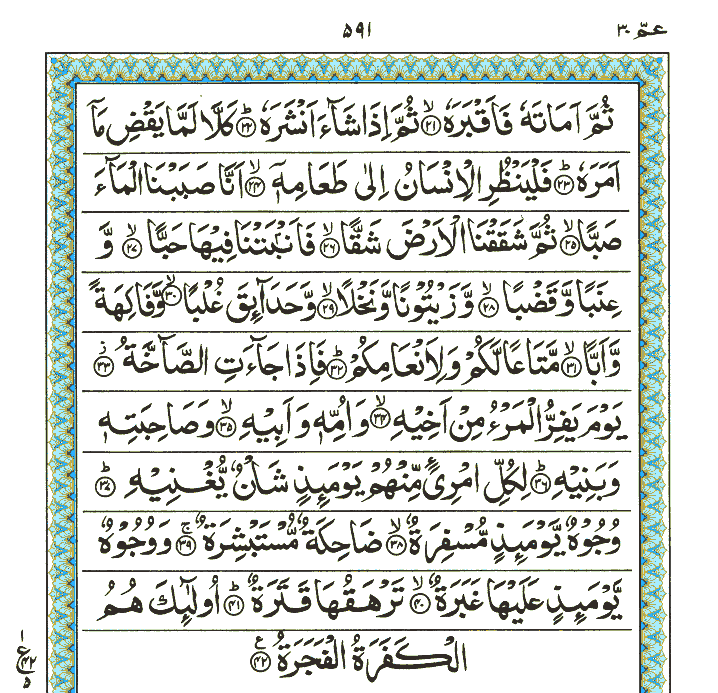 عمّ ٣٠
٥٩١
ثُمَّ اَمَاتَهٗ فَاَقْبَرَهٗ ۙ‏﴿۲۱﴾ ثُمَّ اِذَا شَآءَ اَنْشَرَهٗ ؕ‏﴿۲۲﴾ كَلَّا لَمَّا يَقْضِ مَاۤ
اَمَرَهٗ ؕ‏﴿۲۳﴾ فَلْيَنْظُرِ الْاِنْسَانُ اِلٰى طَعَامِهٖۤ ۙ‏﴿۲۴﴾ اَنَّا صَبَبْنَا الْمَآءَ
صَبًّا ۙ‏﴿۲۵﴾ ثُمَّ شَقَقْنَا الْاَرْضَ شَقًّا ۙ‏﴿۲۶﴾ فَاَنْۢبَتْنَا فِيْهَا حَبًّا ۙ‏﴿۲۷﴾ وَّ
عِنَبًا وَّقَضْبًا ۙ‏﴿۲۸﴾ وَّزَيْتُوْنًا وَّنَخْلًا ۙ‏﴿۲۹﴾ وَّحَدَآئِقَ غُلْبًا ۙ‏﴿۳۰﴾ وَّفَاكِهَةً
وَّاَبًّا ۙ‏﴿۳۱﴾ مَّتَاعًا لَّكُمْ وَلِاَنْعَامِكُمْ ؕ‏﴿۳۲﴾ فَاِذَا جَآءَتِ الصَّآخَّةُ ؗ‏﴿۳۳﴾
يَوْمَ يَفِرُّ الْمَرْءُ مِنْ اَخِيْهِ ۙ‏﴿۳۴﴾ وَاُمِّهٖ وَاَبِيْهِ ۙ‏﴿۳۵﴾ وَصَاحِبَتِهٖ
وَبَنِيْهِ ؕ‏﴿۳۶﴾ لِكُلِّ امْرِیًٴ مِّنْهُمْ يَوْمَئِذٍ شَاْنٌ يُّغْنِيْهِ ؕ‏﴿۳۷﴾
وُجُوْهٌ يَّوْمَئِذٍ مُّسْفِرَةٌ ۙ‏﴿۳۸﴾ ضَاحِكَةٌ مُّسْتَبْشِرَةٌ ۚ‏﴿۳۹﴾ وَوُجُوْهٌ
يَّوْمَئِذٍ عَلَيْهَا غَبَرَةٌ ۙ‏﴿۴۰﴾ تَرْهَقُهَا قَتَرَةٌ ؕ‏﴿۴۱﴾ اُولٰٓئِكَ هُمُ
الْكَفَرَةُ الْفَجَرَةُ ‏﴿۴۲﴾ ع
١
ع ۴۲
۵